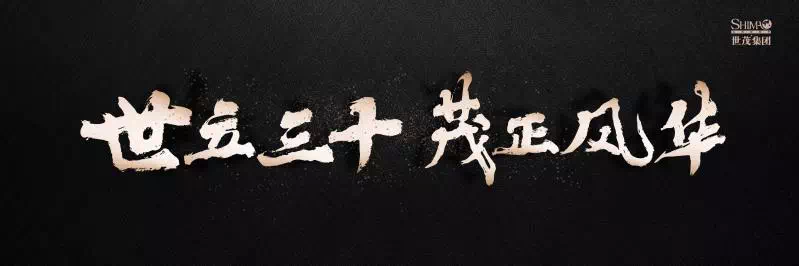 世立三十 茂正风华
SHIMAO
世茂集团